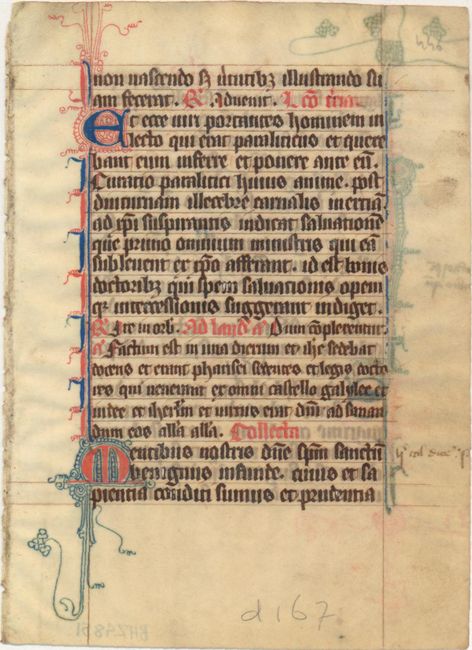 non nascendo sꝫ v̄tutibꝫ illustrando su
am fecerat. ℟ Aduenit. Lc̄o tr̄cia.
Et ecce uiri portantes hominem in
lecto qui erat paraliticus et quere
bant eum inferre et ponere ante eū.
Curatio paralitici huius anime. post
diuturnam illecebre carnalis inertiā
ad xp̄i suspirantis indicat saluationē
que primo omnium ministris qui eā
subleuent et xp̄o afferant. id est bonis
doctoribꝫ qui spem saluationis opem
qꝫ intercessionis suggerant indiget.
℟ Ite in orb. Ad laud̄ a̅ Dum cōplerentur.
a̅ Factum est in una dierum et ihc sedebat
docens et erant pharisei sedentes et legis docto
res qui uenerant ex omni castello galylee et
iudee et ihrl̄m et uirtus erat dn̄i ad sanan
dum eos alla alla. Collecta
Mentibus nostris dn̄e sp̄m sanctū
benignus infunde. cuius et sa
pientia conditi sumus et prudentia
d 167